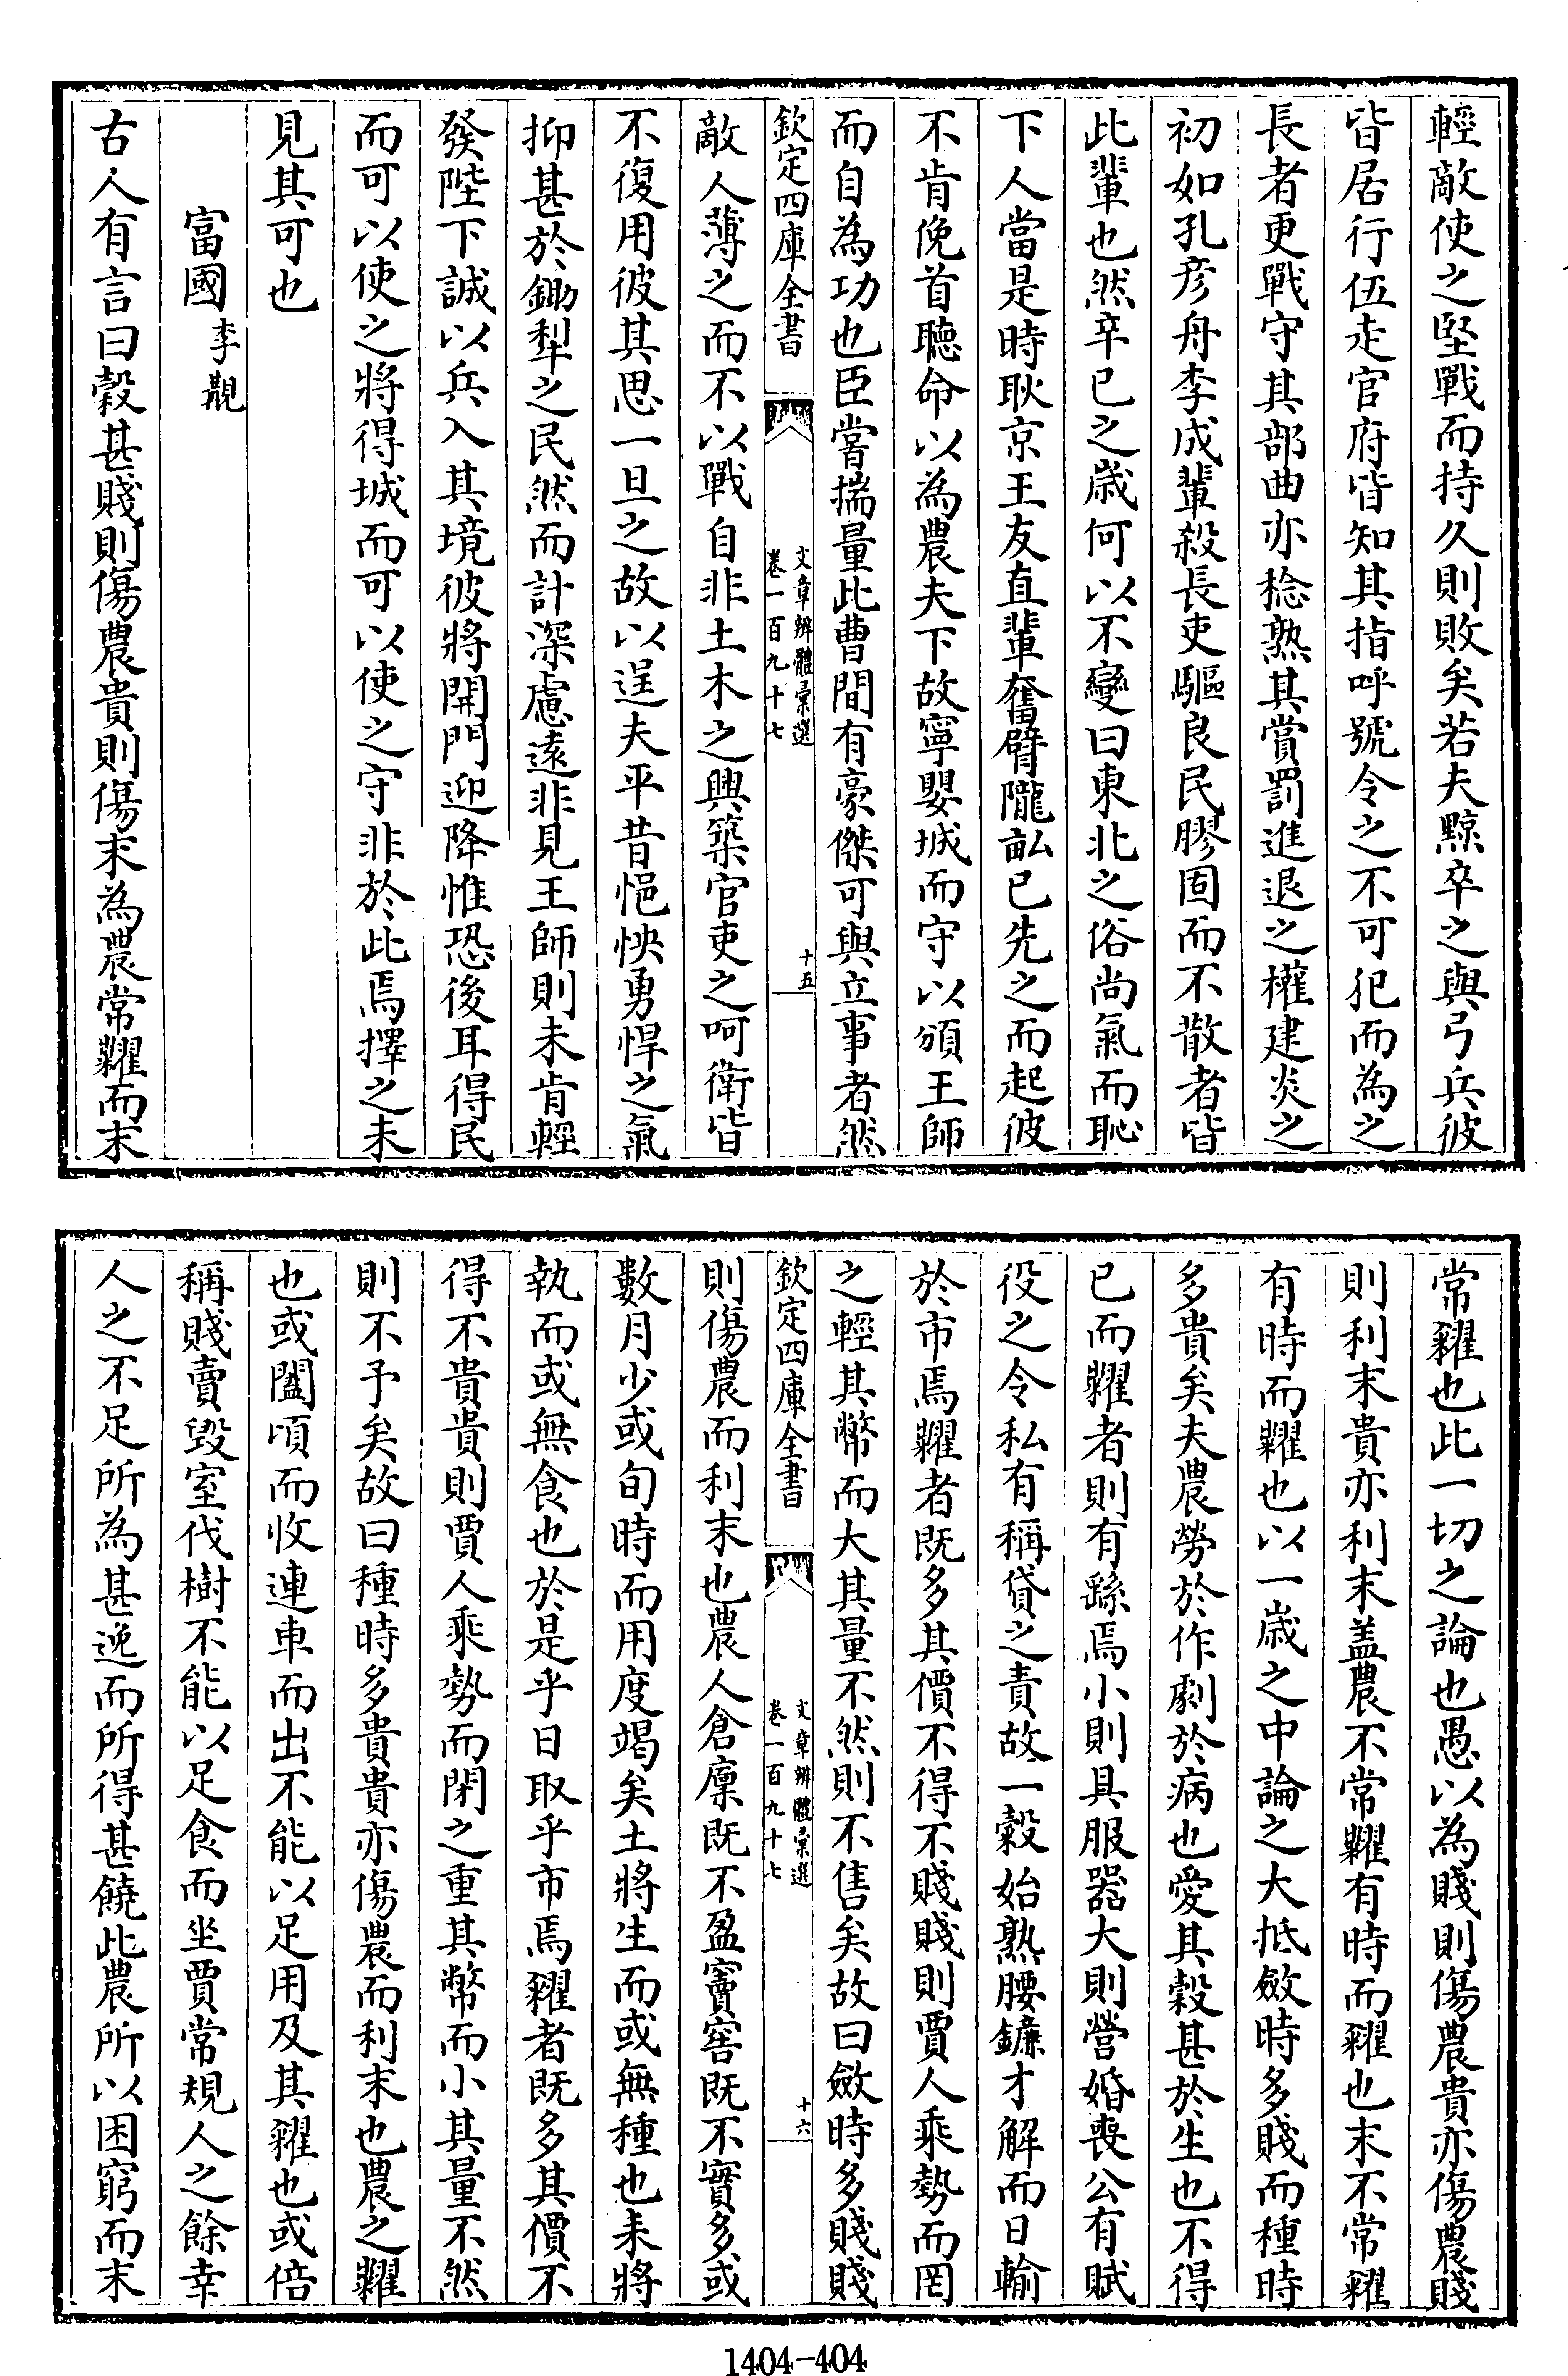 輕敵使之堅戰而持久則敗矣若夫黥卒之與弓兵彼
皆居行伍走官府皆知其指呼號令之不可犯而為之
長者更戰守其部曲亦稔熟其賞罰進退之權建炎之
初如孔彦舟李成輩殺長吏驅良民膠固而不散者皆
此輩也然辛巳之歲何以不變曰東北之俗尚氣而恥
下人當是時耿京王友直輩奮臂隴畝已先之而起彼
不肯俛首聽命以為農夫下故寧嬰城而守以須王師
而自為功也臣嘗揣量此曹間有豪傑可與立事者然
欽定四庫全書
文章辨體彙選
卷一百九十七
十五
敵人薄之而不以戰自非土木之興築官吏之呵衛皆
不復用彼其思一旦之故以逞夫平昔悒怏勇悍之氣
抑甚於鋤犁之民然而計深慮遠非見王師則未肯輕
發陛下誠以兵入其境彼將開門迎降惟恐後耳得民
而可以使之將得城而可以使之守非於此焉擇之未
見其可也
富國 李覯
古人有言曰穀甚賤則傷農貴則傷末為農常糶而末
常糴也此一切之論也愚以為賤則傷農貴亦傷農賤
則利末貴亦利末盖農不常糶有時而糴也末不常糴
有時而糶也以一歲之中論之大抵斂時多賤而種時
多貴矣夫農勞於作劇於病也愛其穀甚於生也不得
已而糶者則有繇焉小則具服器大則營婚喪公有賦
役之令私有稱貸之責故一穀始熟腰鐮才解而日輸
於市焉糶者既多其價不得不賤賤則賈人乘勢而罔
之輕其幣而大其量不然則不售矣故曰斂時多賤賤
欽定四庫全書
文章辨體彙選
卷一百九十七
十六
則傷農而利末也農人倉廩既不盈竇窖既不實多或
數月少或旬時而用度竭矣土將生而或無種也耒將
執而或無食也於是乎日取乎市焉糴者既多其價不
得不貴貴則賈人乘勢而閉之重其幣而小其量不然
則不予矣故曰種時多貴貴亦傷農而利末也農之糶
也或闔頃而收連車而出不能以足用及其糴也或倍
稱賤賣毀室伐樹不能以足食而坐賈常規人之餘幸
人之不足所為甚逸而所得甚饒此農所以困窮而末
1404-404